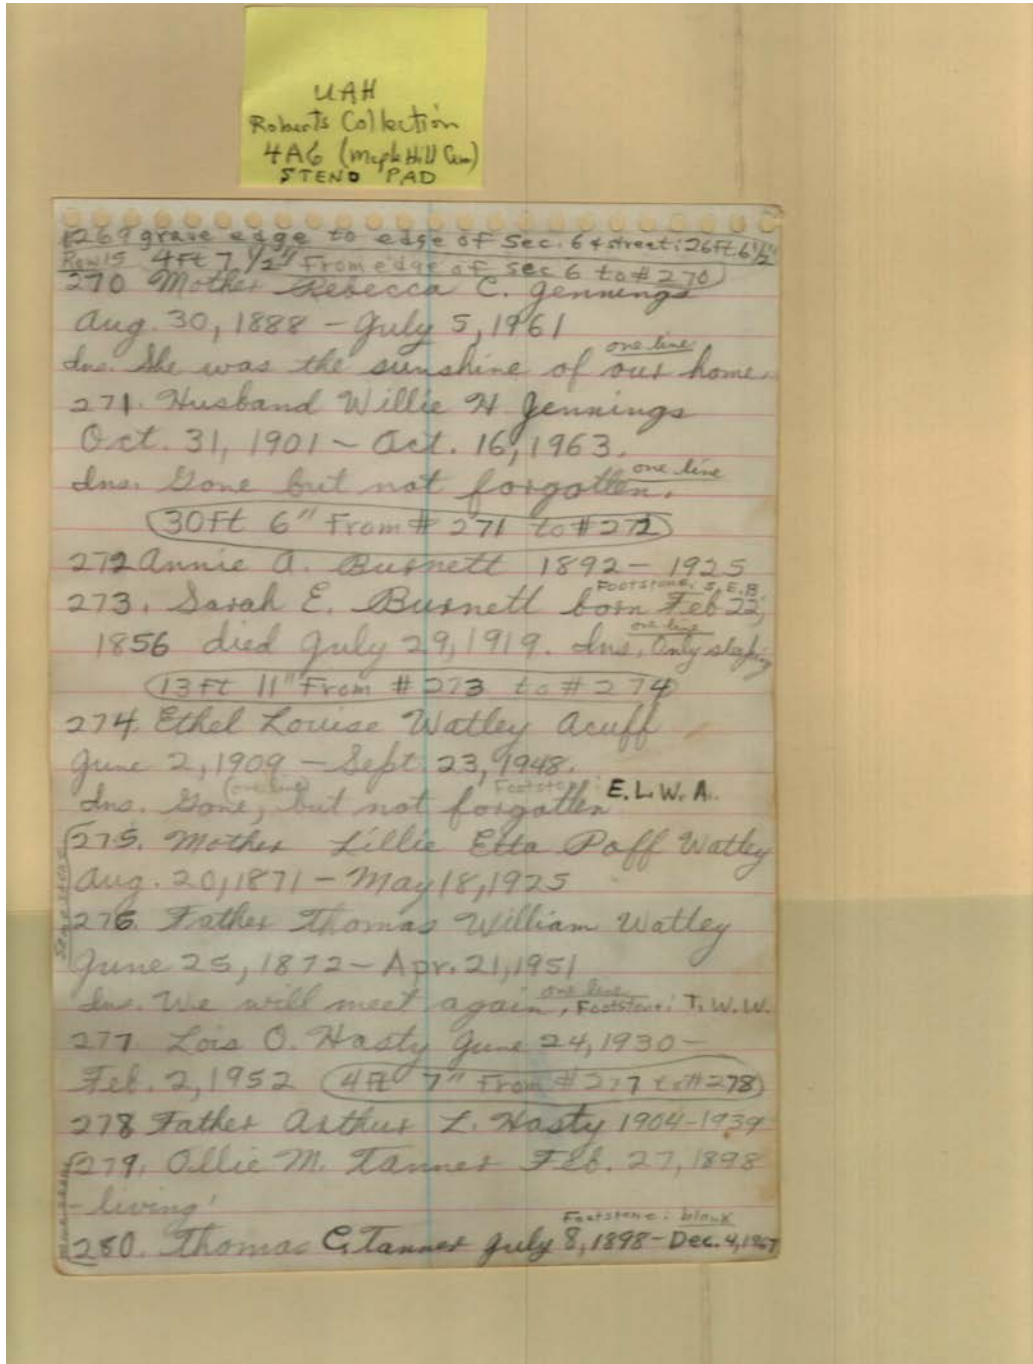 UAH
Roberts Collection
4A6 (Maple Hill Cem)
STENO PAD
#269 grave edge to edge of Sec. 6 & street: 26ft. 6 1/2"
Row 15 4ft 7 1/2" From edge of Sec 6 to #270
270 Mother Rebecca C. Jennings
Aug. 30, 1888 - July 5, 1961
one line
Ins. She was the sunshine of our home.
271. Husband Willie H. Jennings
Oct. 31, 1901 - Oct. 16, 1963.
one line
Ins. Gone but not forgotten.
30ft 6" From #271 to #272
272 Annie A. Burnett 1892 - 1925
Footstone: S.E.B.
273. Sarah E. Burnett born Feb 22,
one line
1856 died July 29, 1919. Ins. Only sleeping
13ft 11" From #273 to #274
274. Ethel Louise Watley Acuff
June 2, 1909 - Sept. 23, 1948.
(one line) Footstone: E.L.W.A.
Ins. Gone, but not forgotten
275. Mother Lillie Etta Poff Watley
Aug. 20, 1871 - May 18, 1925
same stone
276. Father Thomas William Watley
June 25, 1872 - Apr. 21, 1951
one line
Ins. We will meet again, Footstone: T.W.W.
277 Lois O. Hasty June 24, 1930 -
Feb. 2, 1952 4ft 7" From #277 to #278
278 Father Arthur L. Hasty 1904-1939
279. Ollie M. Tanner Feb. 27, 1898
same stone
- living
Footstone: blank
280. Thomas C. Tanner July 8, 1898 - Dec. 4, 1967